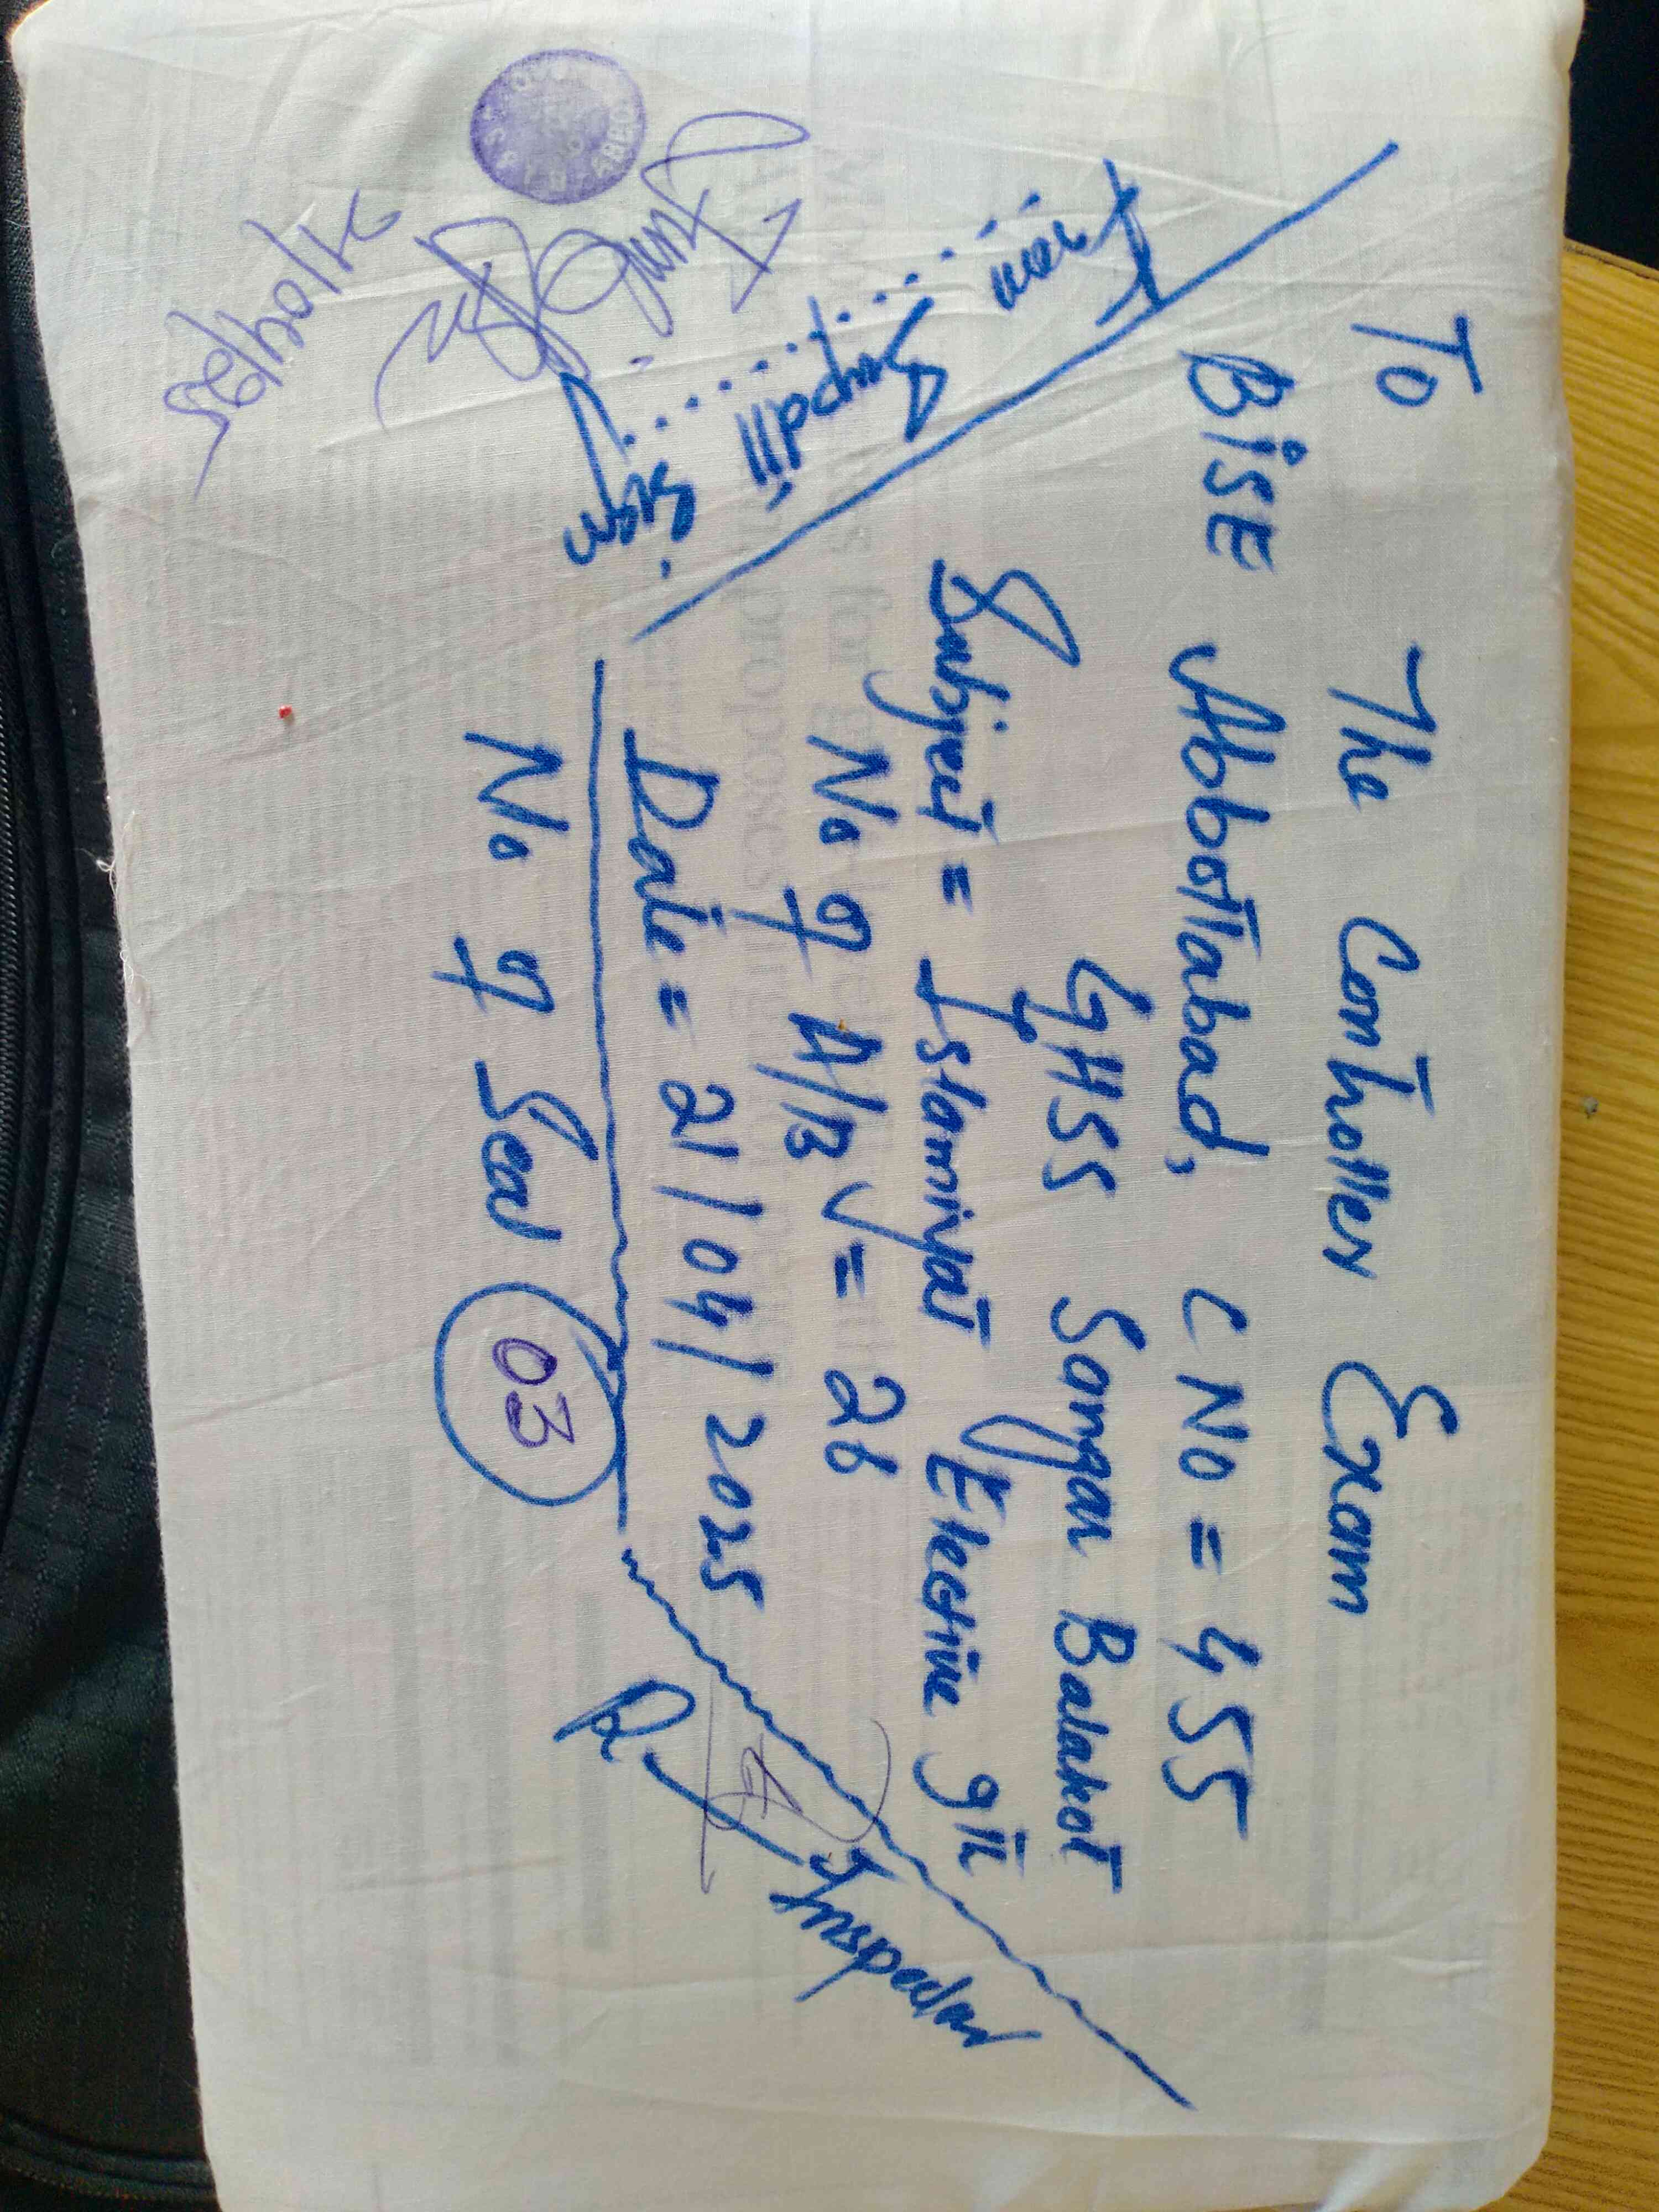 To The Controller Exam
BISE Abbottabad, C No = 455
GHSS Sangar Balakot
Subject = Islamiyat Elective 9th
No of A/B = 26
Date = 21/04/2025
No of Seal 03
From
Supdtt:
Sign
21/04/25